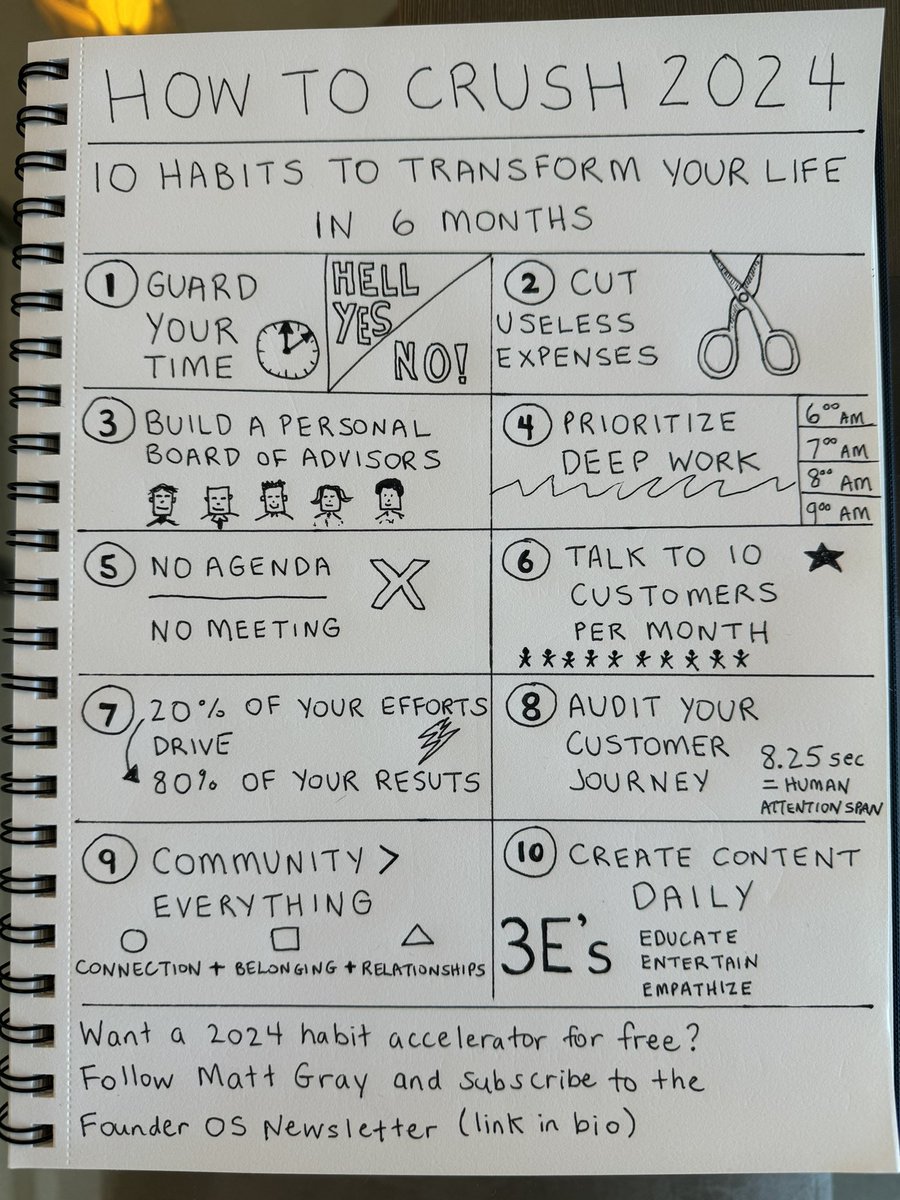 HOW TO CRUSH 2024
10 HABITS TO TRANSFORM YOUR LIFE
IN 6 MONTHS
1 GUARD
YOUR
TIME
HELL
YES
NO!
2 CUT
USELESS
EXPENSES
3 BUILD A PERSONAL
BOARD OF ADVISORS
4 PRIORITIZE
DEEP WORK
6⁰⁰ AM
7⁰⁰ AM
8⁰⁰ AM
9⁰⁰ AM
5 NO AGENDA
NO MEETING
6 TALK TO 10
CUSTOMERS
PER MONTH
7 20% OF YOUR EFFORTS
DRIVE
80% OF YOUR RESUTS
8 AUDIT YOUR
CUSTOMER
JOURNEY
8.25 sec
= HUMAN
ATTENTION SPAN
9 COMMUNITY >
EVERYTHING
CONNECTION + BELONGING + RELATIONSHIPS
10 CREATE CONTENT
DAILY
3E's
EDUCATE
ENTERTAIN
EMPATHIZE
Want a 2024 habit accelerator for free?
Follow Matt Gray and subscribe to the
Founder OS Newsletter (link in bio)